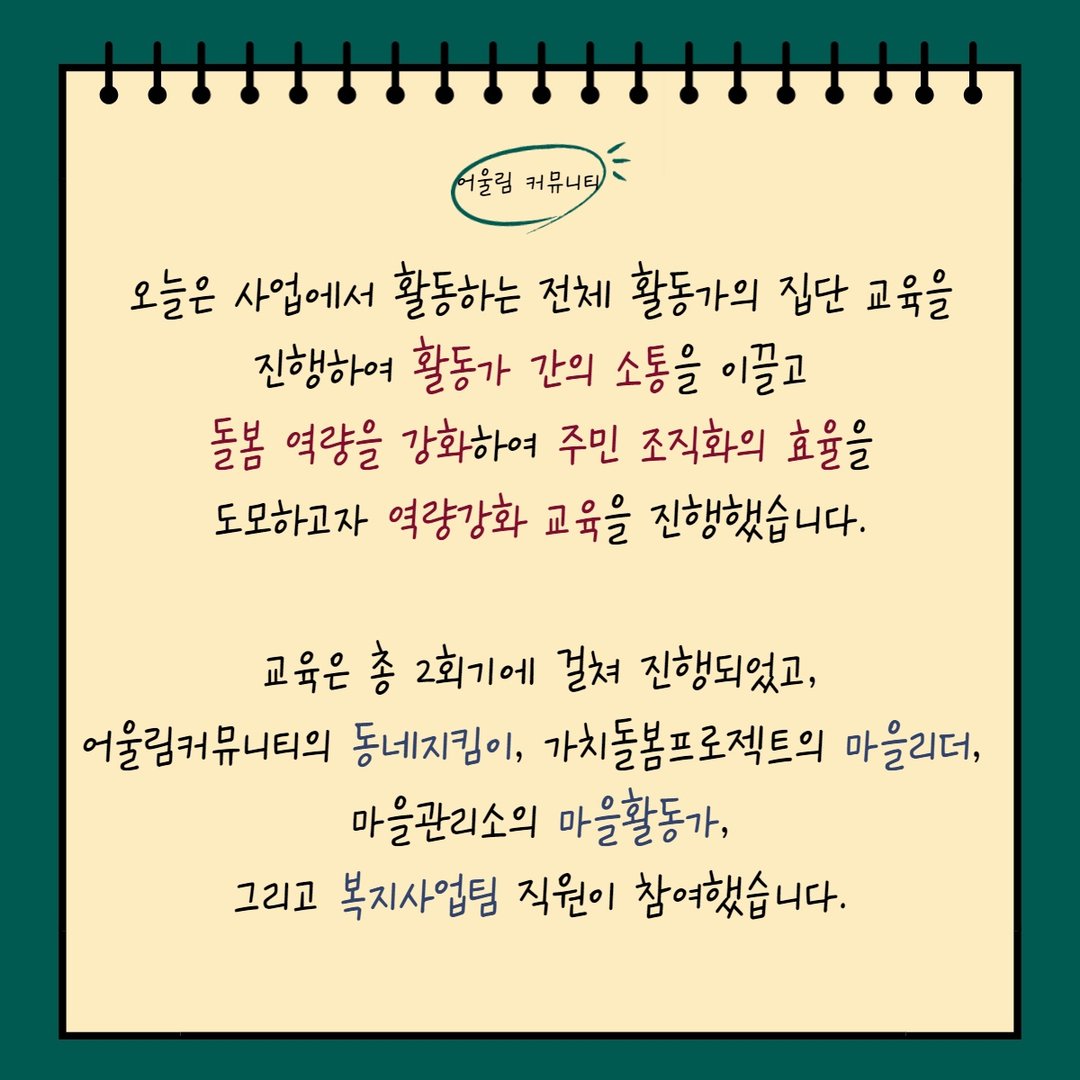 어울림 커뮤니티
오늘은 사업에서 활동하는 전체 활동가의 집단 교육을
진행하여 활동가 간의 소통을 이끌고
돌봄 역량을 강화하여 주민 조직화의 효율을
도모하고자 역량강화 교육을 진행했습니다.
교육은 총 2회기에 걸쳐 진행되었고,
어울림커뮤니티의 동네지킴이, 가치돌봄프로젝트의 마을리더,
마을관리소의 마을활동가,
그리고 복지사업팀 직원이 참여했습니다.